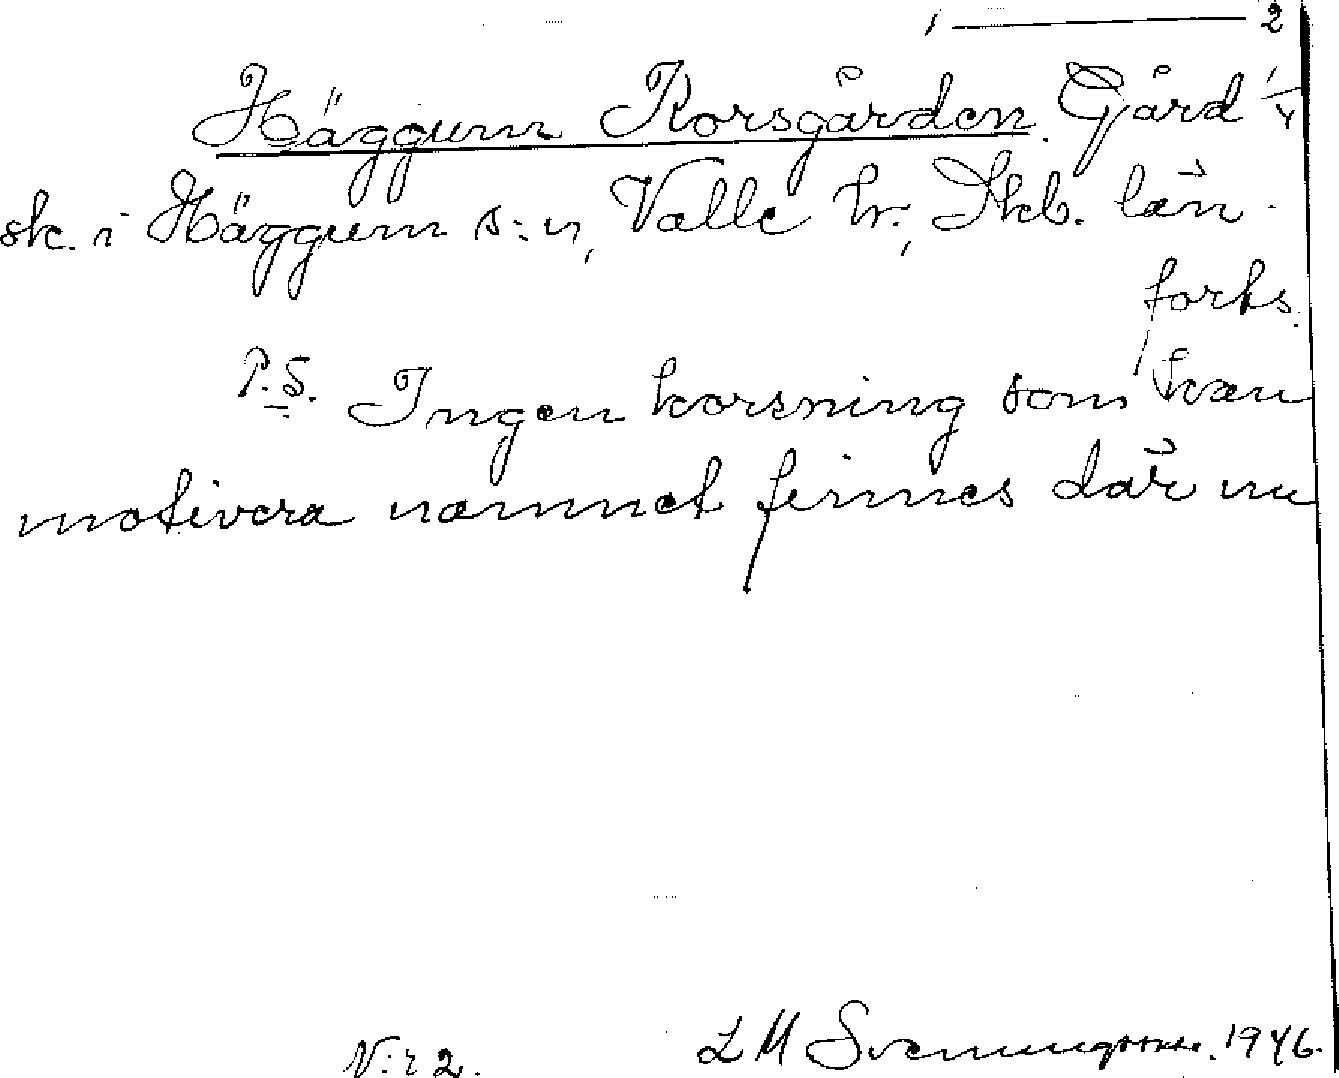 1 — 2
Häggum Korsgården. Gård 1/4
sk. i Häggum s:n, Valle hr., Skb. län.
forts.
P.S. Ingen korsning som kan
motivera namnet finnes där nu
N:r 2. L M Svenungsson. 1946.